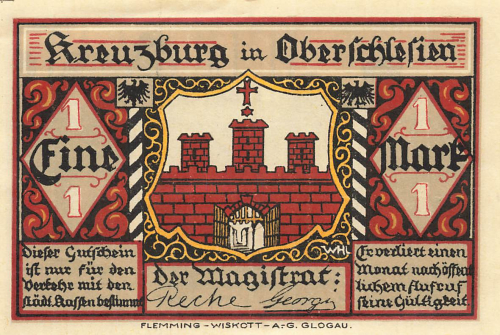 Kreuzburg in Oberschlesien
1 1
Eine Mark
1 1
Dieser Gutschein
ist nur für den
Verkehr mit den
städt. Kassen bestimmt
WHL
Der Magistrat:
Reche Georgi
Er verliert einen
Monat nach öffent-
lichem Aufruf
seine Gültigkeit
FLEMMING-WISKOTT-A-G. GLOGAU.